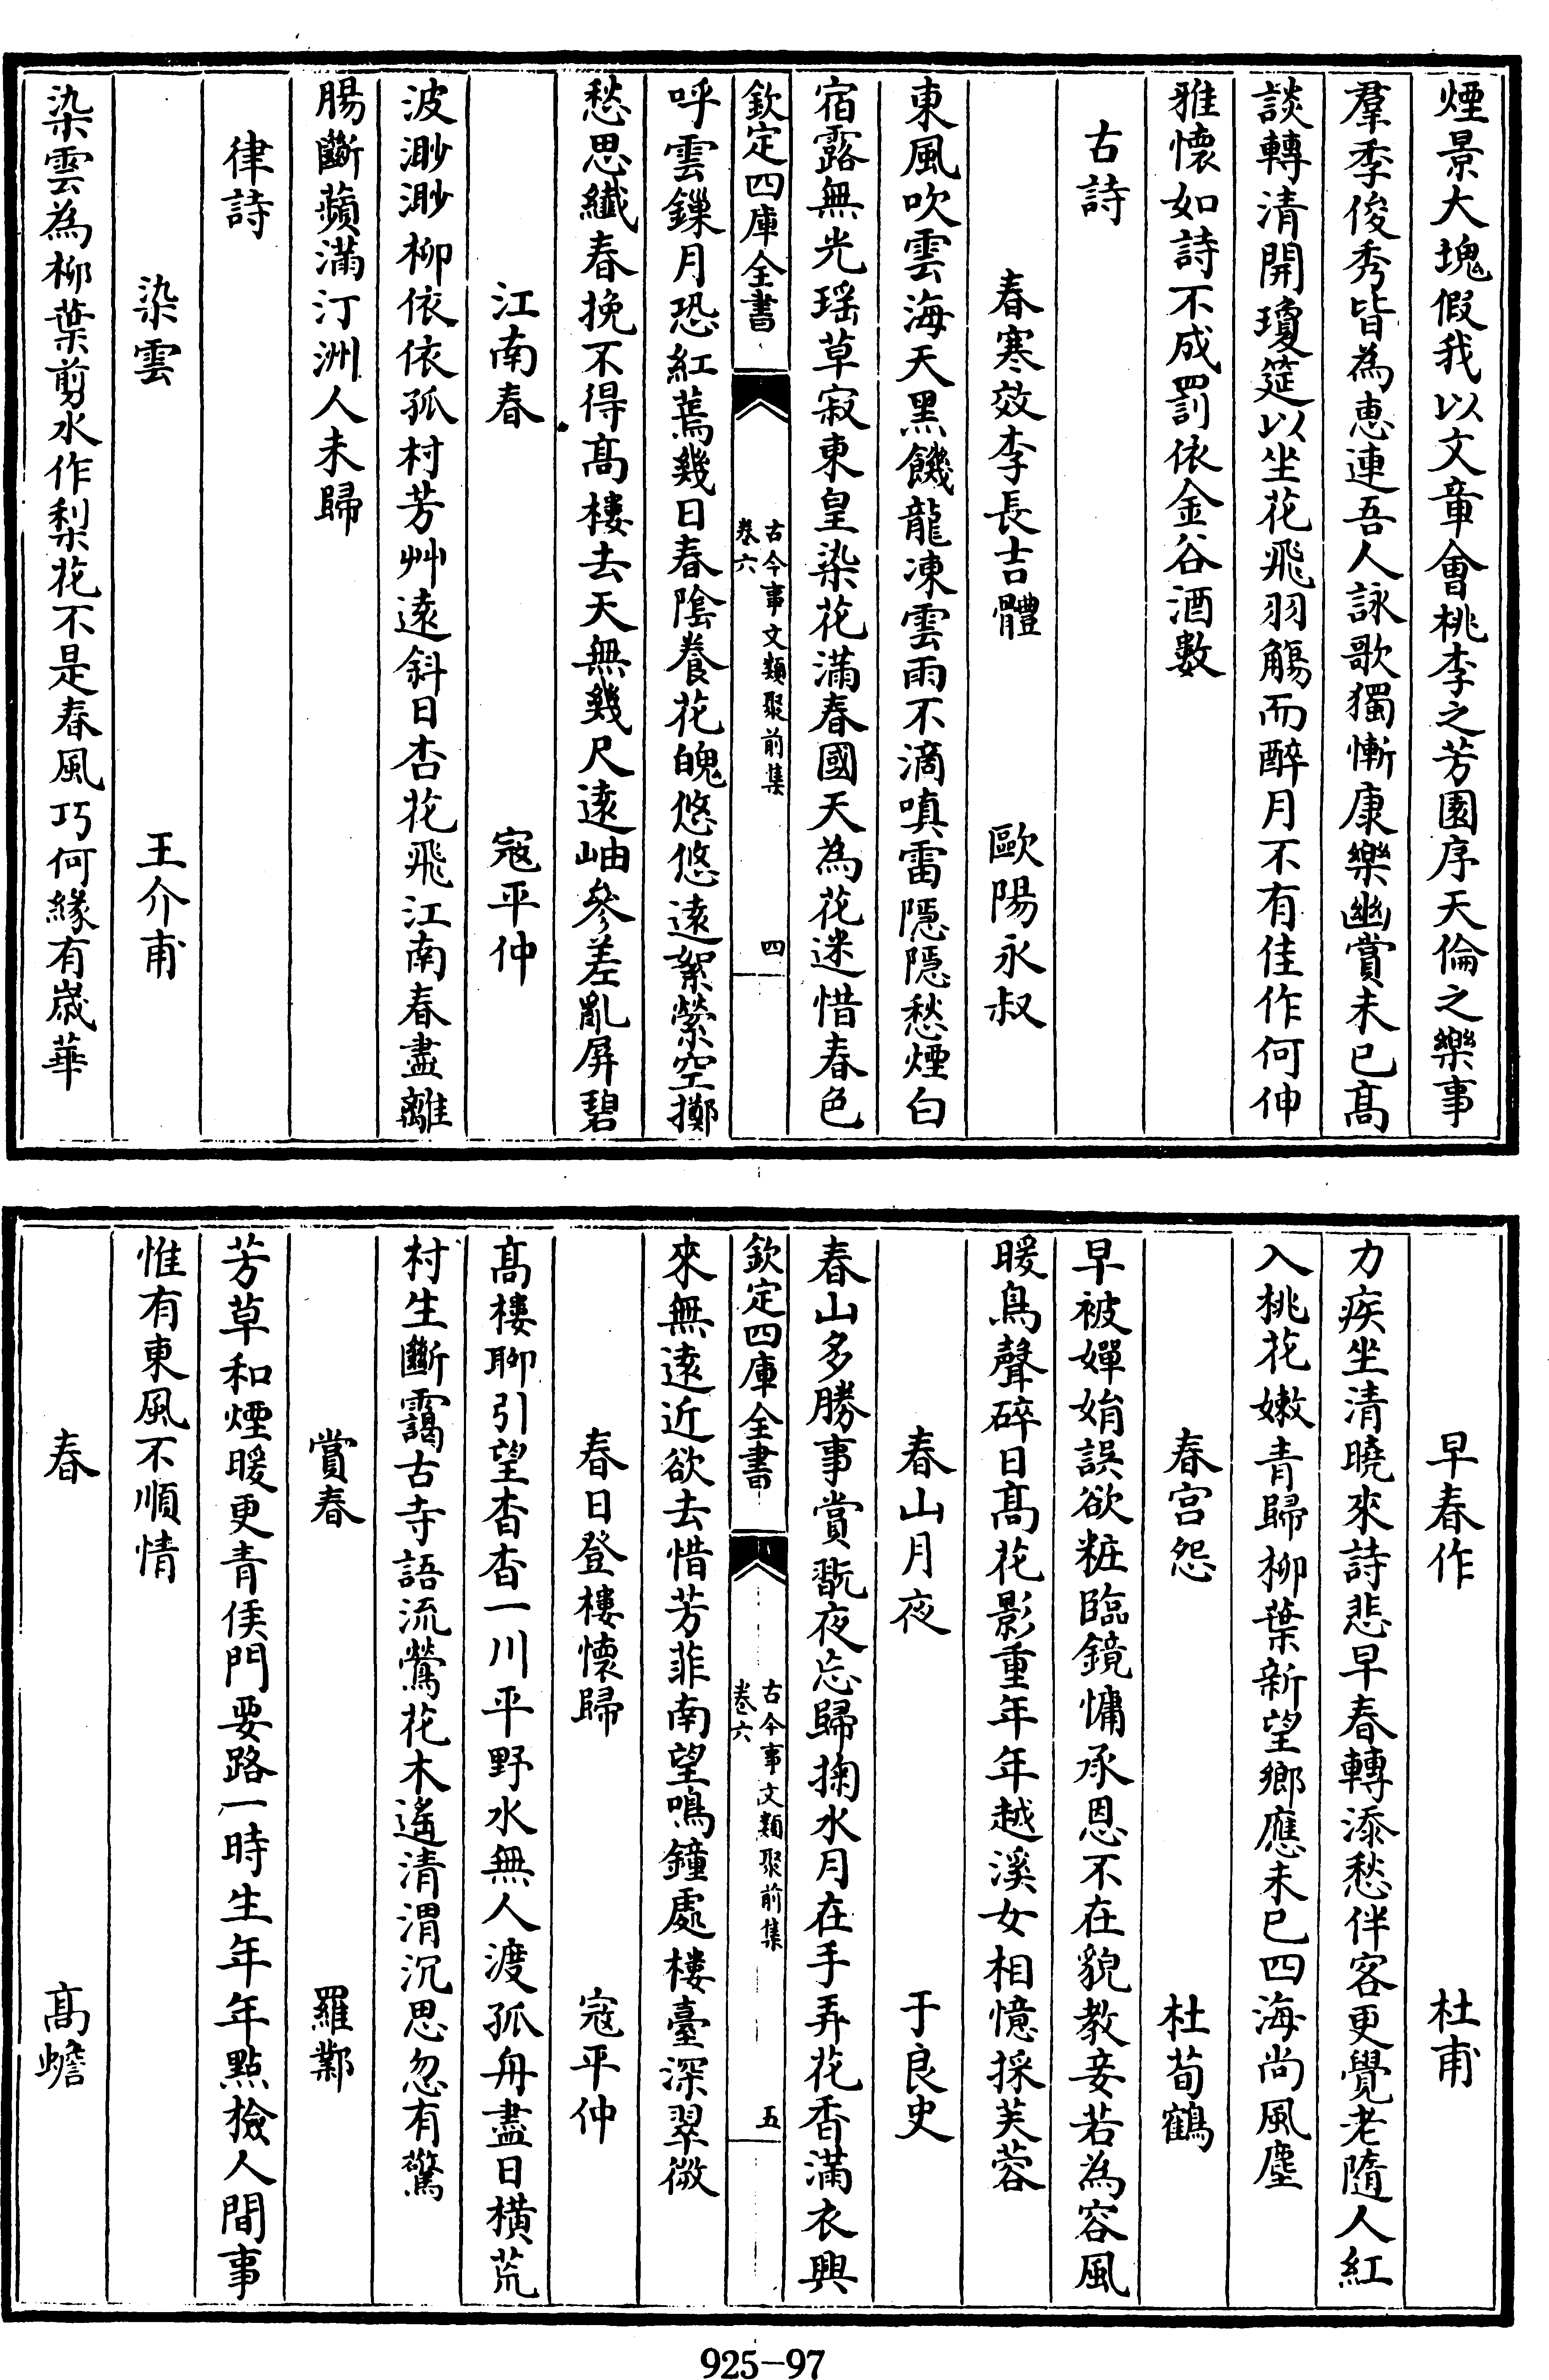 煙景大塊假我以文章會桃李之芳園序天倫之樂事
羣季俊秀皆為惠連吾人詠歌獨慚康樂幽賞未已髙
談轉清開瓊筵以坐花飛羽觴而醉月不有佳作何伸
雅懷如詩不成罰依金谷酒數
古詩
春寒效李長吉體 歐陽永叔
東風吹雲海天黑饑龍凍雲雨不滴嗔雷隠隠愁煙白
宿露無光瑶草寂東皇染花滿春國天為花迷惜春色
欽定四庫全書 古今事文類聚前集 卷六 四
呼雲鏁月恐紅蔫幾日春隂養花魄悠悠逺絮縈空擲
愁思纎春挽不得髙樓去天無幾尺逺岫參差亂屏碧
江南春 寇平仲
波渺渺柳依依孤村芳艸逺斜日杏花飛江南春盡離
腸斷蘋滿汀洲人未歸
律詩
染雲 王介甫
染雲為柳葉剪水作梨花不是春風巧何緣有嵗華
早春作 杜甫
力疾坐清曉來詩悲早春轉添愁伴客更覺老隨人紅
入桃花嫩青歸柳葉新望鄉應未已四海尚風塵
春宫怨 杜荀鶴
早被嬋娟誤欲粧臨鏡慵承恩不在貌教妾若為容風
暖鳥聲碎日髙花影重年年越溪女相憶採芙蓉
春山月夜 于良史
春山多勝事賞翫夜忘歸掬水月在手弄花香滿衣興
欽定四庫全書 古今事文類聚前集 卷六 五
來無逺近欲去惜芳菲南望鳴鐘處樓臺深翠微
春日登樓懷歸 寇平仲
髙樓聊引望杳杳一川平野水無人渡孤舟盡日橫荒
村生斷靄古寺語流鶯花木遙清渭沉思忽有驚
賞春 羅鄴
芳草和煙暖更青侯門要路一時生年年點檢人間事
惟有東風不順情
春 髙蟾
925-97